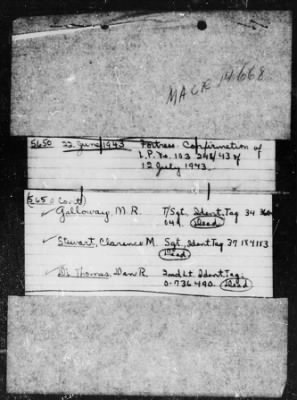 MACR 14668
5650 22 June 1943 Fortress Confirmation of
L.P. No. 103 248/43 of
12 July 1943.
(5650 Cont)
Galloway, M.R. T/Sgt. Ident. Tag 34 360
Dead
Stewart, Clarence M. Sgt. Ident. Tag 37 184 113
Dead
St. Thomas, Dan R. 2nd Lt. Ident. Tag:
0-736 490. Dead